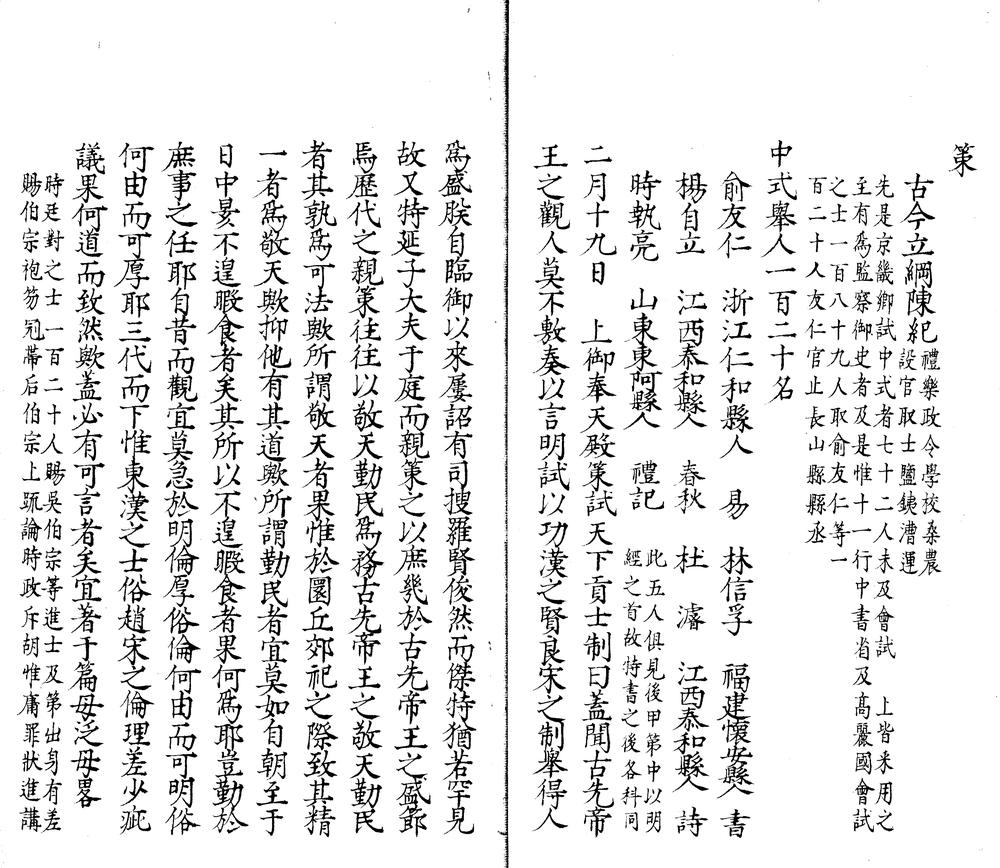 策
古今立綱陳紀禮樂政令學校桑農
設官取士鹽鐵漕運
先是京畿鄉試中式者七十二人未及會試　上皆来用之
至有爲監察御史者及是惟十一行中書省及髙麗國會試
之士一百八十九人取俞友仁等一
百二十人友仁官止長山縣縣丞
中式舉人一百二十名
俞友仁　浙江仁和縣人　易　林信孚　福建懷安縣人　書
楊自立　江西泰和縣人　春秋　杜濬　江西泰和縣人　詩
時執亮　山東東阿縣人　禮記　此五人俱見後甲第中以明
經之首故特書之後各科同
二月十九日　上御奉天殿策試天下貢士制曰蓋聞古先帝
王之觀人莫不敷奏以言明試以功漢之賢良宋之制舉得人
爲盛朕自臨御以來屢詔有司搜羅賢俊然而傑特猶若罕見
故又特延子大夫于庭而親策之以庶幾於古先帝王之盛節
焉歷代之親策往往以敬天勤民爲務古先帝王之敬天勤民
者其孰爲可法歟所謂敬天者果惟於圜丘郊祀之際致其精
一者爲敬天歟抑他有其道歟所謂勤民者宜莫如自朝至于
日中昃不遑暇食者矣其所以不遑暇食者果何爲耶豈勤於
庶事之任耶自昔而觀宜莫急於明倫厚俗倫何由而可明俗
何由而可厚耶三代而下惟東漢之士俗趙宋之倫理差少疵
議果何道而致然歟蓋必有可言者矣宜著于篇毋泛毋畧
時廷對之士一百二十人賜吳伯宗等進士及第出身有差
賜伯宗袍笏冠帶后伯宗上疏論時政斥胡惟庸罪狀進講